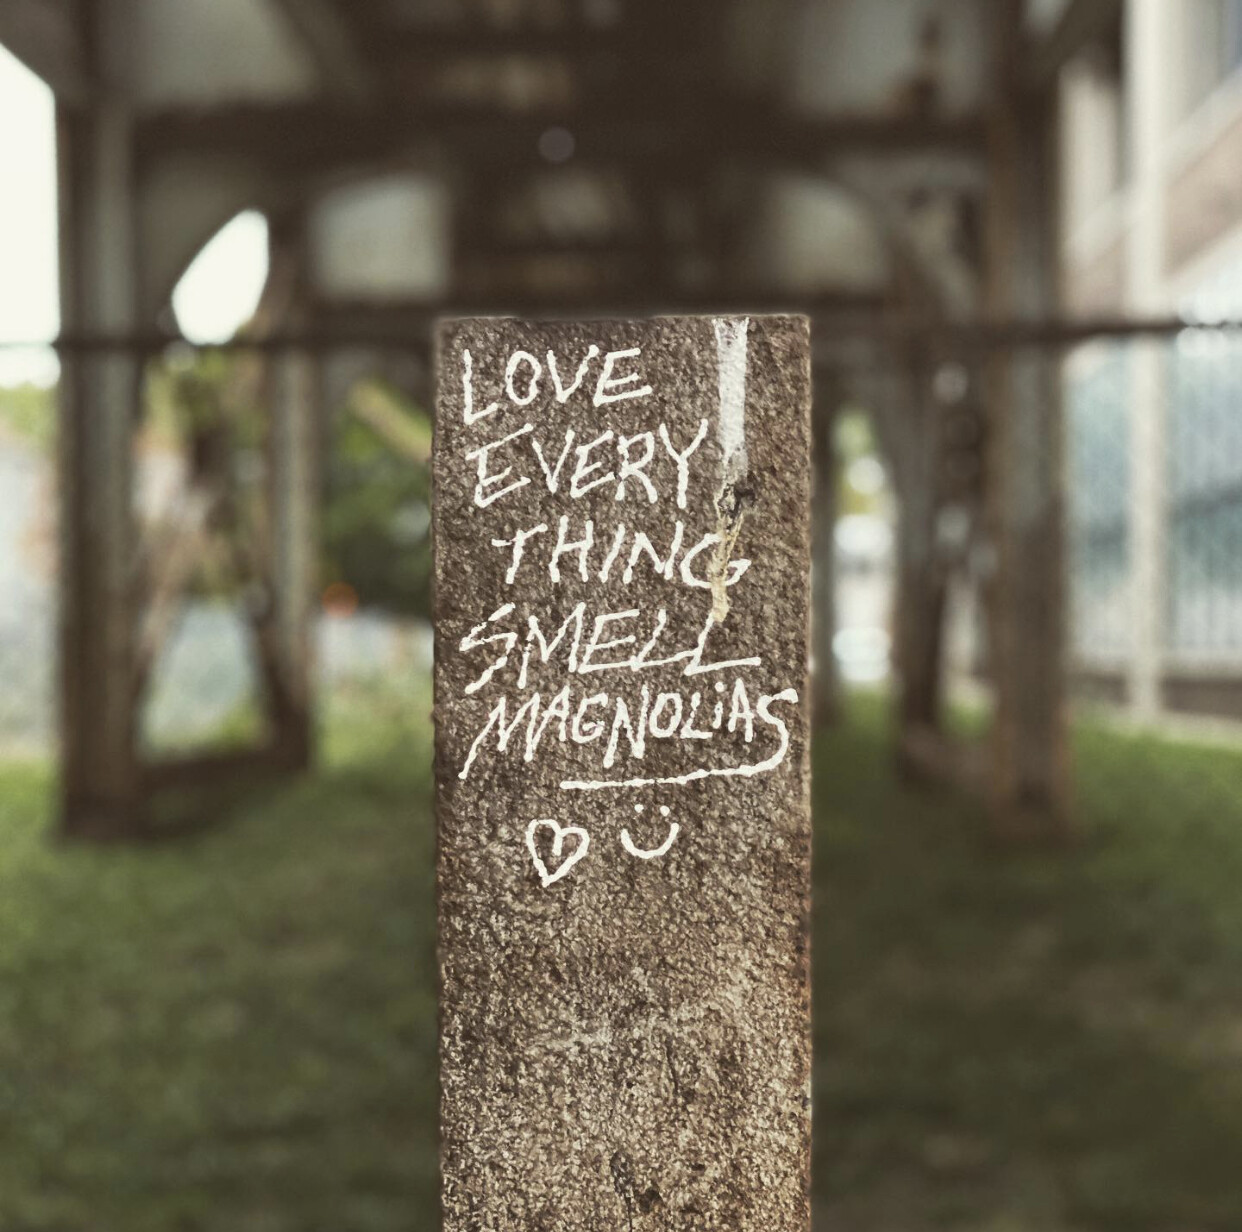 LOVE
EVERY
THING
SMELL
MAGNOLiAS